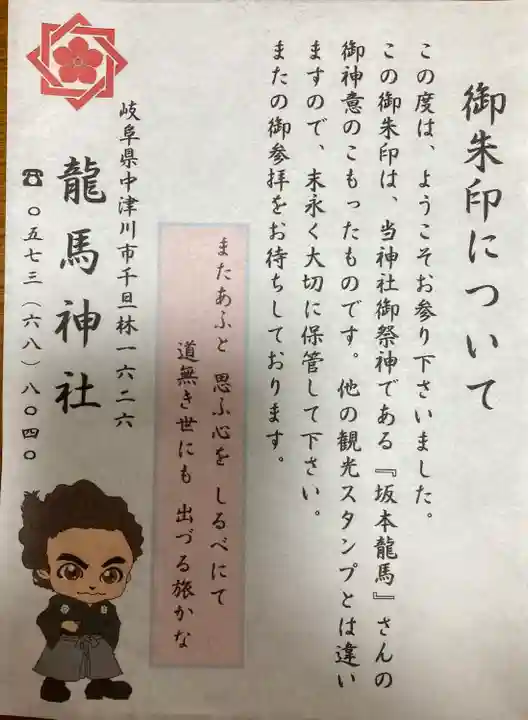 御朱印について
この度は、ようこそお参り下さいました。
この御朱印は、当神社御祭神である『坂本龍馬』さんの
御神意のこもったものです。他の観光スタンプとは違い
ますので、末永く大切に保管して下さい。
またの御参拝をお待ちしております。
またあふと 思ふ心を しるべにて
道無き世にも 出づる旅かな
岐阜県中津川市千旦林一六二六
龍馬神社
☎ 〇五七三(六八)八〇四〇